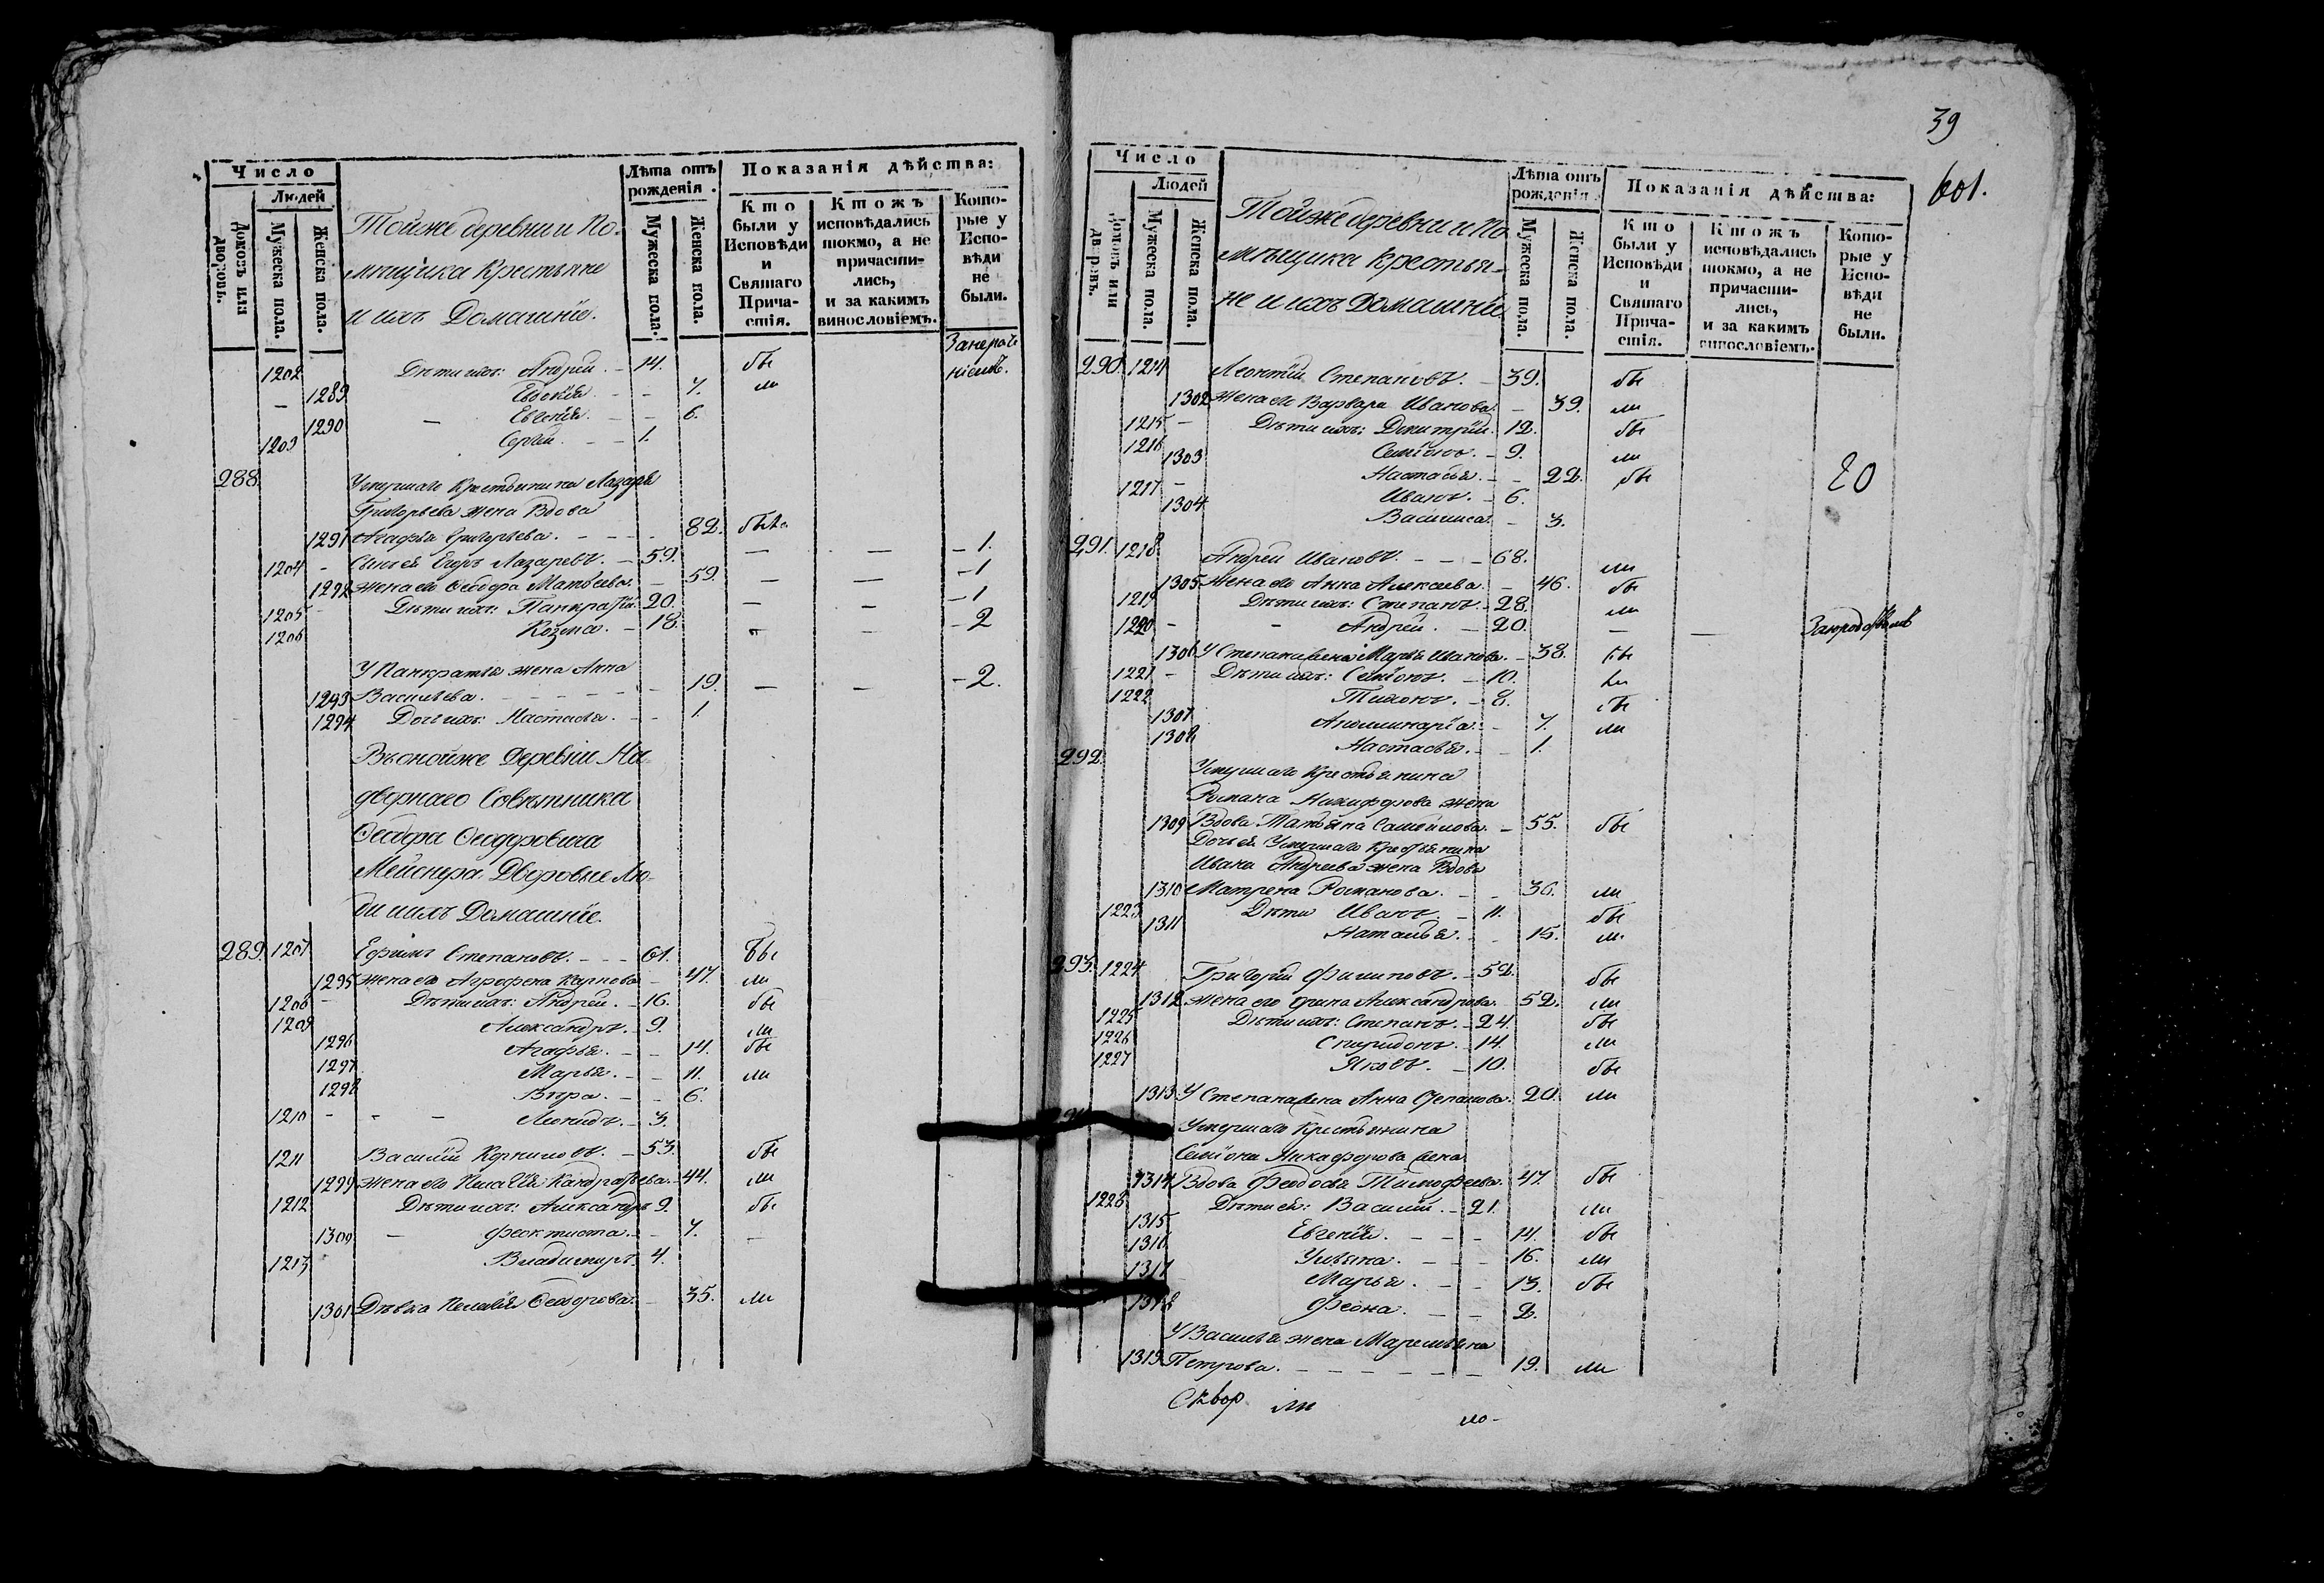 Число
Людей
Домовъ или дворовъ.
Мужеска пола.
Женска пола.
Тойже деревни и По-
мещика Крестьяне
и ихъ Домашніе.
Лѣта отъ рожденія.
Мужеска пола.
Женска пола.
Показанія дѣйства:
Кто были у Исповѣди и Святаго Причастія.
Ктожъ исповѣдались токмо, а не причастились, и за какимъ винословіемъ.
Которые у Исповѣди не были.
1202 Дѣти ихъ: Андрей. 14. бы
1289 Евдокія. 7. ли
1290 Евгенія. 6.
1203 Сергій. 1.
288. Умершаго Крестьянина Лазаря
Григорьева жена Вдова
1291 Агафья Григорьева. 82. была
1204 Сынъ ея Егоръ Лазаревъ. 59. — — 1.
1292 жена его Феодора Матвѣева. 59. — — 1
1205 Дѣти ихъ: Панкратій. 20. — — 1
1206 Козма. 18. — — 2
У Панкратія жена Анна
1293 Васильева. 19. — — 2.
1294 Дочь ихъ: Настасья. 1.
Въ онойже Деревни На-
дворнаго Совѣтника
Феодора Феодоровича
Мейснера Дворовые Лю-
ди и ихъ Домашніе.
289. 1207 Ефимъ Степановъ. 61. бы
1295 жена его Агрофена Карпова. 47. ли
1208 Дѣти ихъ: Андрей. 16. бы
1209 Александръ. 9. ли
1296 Агафья. 14. бы
1297 Марья. 11. ли
1298 Вѣра. 6.
1210 Леонидъ. 3.
1211 Василій Корниловъ. 53. бы
1299 жена его Пелагія Кандратьева. 44. ли
1212 Дѣти ихъ: Александръ 9. бы
1300 Феоктиста. 7. —
1213 Владимиръ. 4.
1301 Дѣвка Пелагія Феодорова. 35. ли
39
601.
Число
Людей
Домовъ или дворовъ.
Мужеска пола.
Женска пола.
Тойже деревни и По-
мѣщика Крестья-
не и ихъ Домашніе
Лѣта отъ рожденія.
Мужеска пола.
Женска пола.
Показанія дѣйства:
Кто были у Исповѣди и Святаго Причастія.
Ктожъ исповѣдались токмо, а не причастились, и за какимъ винословіемъ.
Которые у Исповѣди не были.
290. 1214 Леонтій Степановъ. 39. бы
1302 жена его Варвара Иванова. 39. ли
1215 Дѣти ихъ: Димитрій. 12. бы
1216 Семіонъ. 9. ли
1303 Настасья. 22. бы
20
1217 Иванъ. 6.
1304 Василиса. 3.
291. 1218 Андрей Ивановъ. 68. ли
1305 жена его Анна Алексѣева. 46. бы
1219 Дѣти ихъ: Степанъ. 28. ли
1220 Андрей. 20. — —
1306 У Степана жена Марья Иванова. 38. бы
1221 Дѣти ихъ: Семіонъ. 10. ли
1222 Тихонъ. 8. бы
1307 Аполинарія. 7. ли
1308 Настасья. 1.
292. Умершаго Крестьянина
Романа Никифорова жена
1309 Вдова Татьяна Самойлова. 55. бы
Дочь ея Умершаго Крестьянина
Ивана Андреева жена Вдова
1310 Матрена Романова. 36. ли
1223 Дѣти Иванъ. 11. бы
1311 Наталья. 15. ли
293. 1224 Григорій Филиповъ. 52. бы
1312 жена его Ирина Александрова. 52. ли
1225 Дѣти ихъ: Степанъ. 24. бы
1226 Спиридонъ. 14. ли
1227 Яковъ. 10. бы
1313 У Степана жена Анна Степанова. 20. ли
Умершаго Крестьянина
Семіона Никифорова жена
1314 Вдова Феодосья Тимофеева. 47. бы
1228 Дѣти ея: Василій. 21. ли
1315 Евгенія. 14. бы
1316 Ульяна. 16. ли
1317 Марья. 13. бы
1318 Феона. 2.
У Василья жена Маремьяна
1319 Петрова. 19. ли